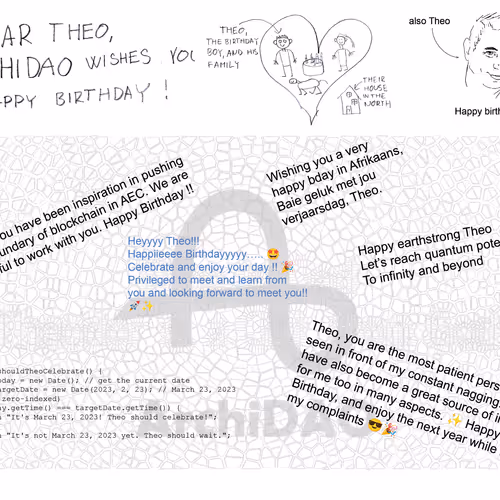 AR THEO,
HIDAO WISHES YOU
PPY BIRTHDAY !
THEO,
THE BIRTHDAY
BOY, AND HIS
FAMILY
THEIR
HOUSE
IN THE
NORTH
also Theo
Happy birth
ou have been inspiration in pushing
undary of blockchain in AEC. We are
ful to work with you. Happy Birthday !!
Wishing you a very
happy bday in Afrikaans,
Baie geluk met jou
verjaarsdag, Theo.
Heyyyy Theo!!!
Happiieeee Birthdayyyyy..... 🤩
Celebrate and enjoy your day !! 🎉
Privileged to meet and learn from
you and looking forward to meet you!!
🚀✨
Happy earthstrong Theo
Let's reach quantum pote
To infinity and beyond
Theo, you are the most patient pers
seen in front of my constant nagging.
have also become a great source of i
for me too in many aspects. ✨ Happy
Birthday, and enjoy the next year while
my complaints 😎🎉
shouldTheoCelebrate() {
oday = new Date(); // get the current date
targetDate = new Date(2023, 2, 23); // March 23, 2023
zero-indexed)
ay.getTime() === targetDate.getTime()) {
n "It's March 23, 2023! Theo should celebrate!";
n "It's not March 23, 2023 yet. Theo should wait.";
hiDAO